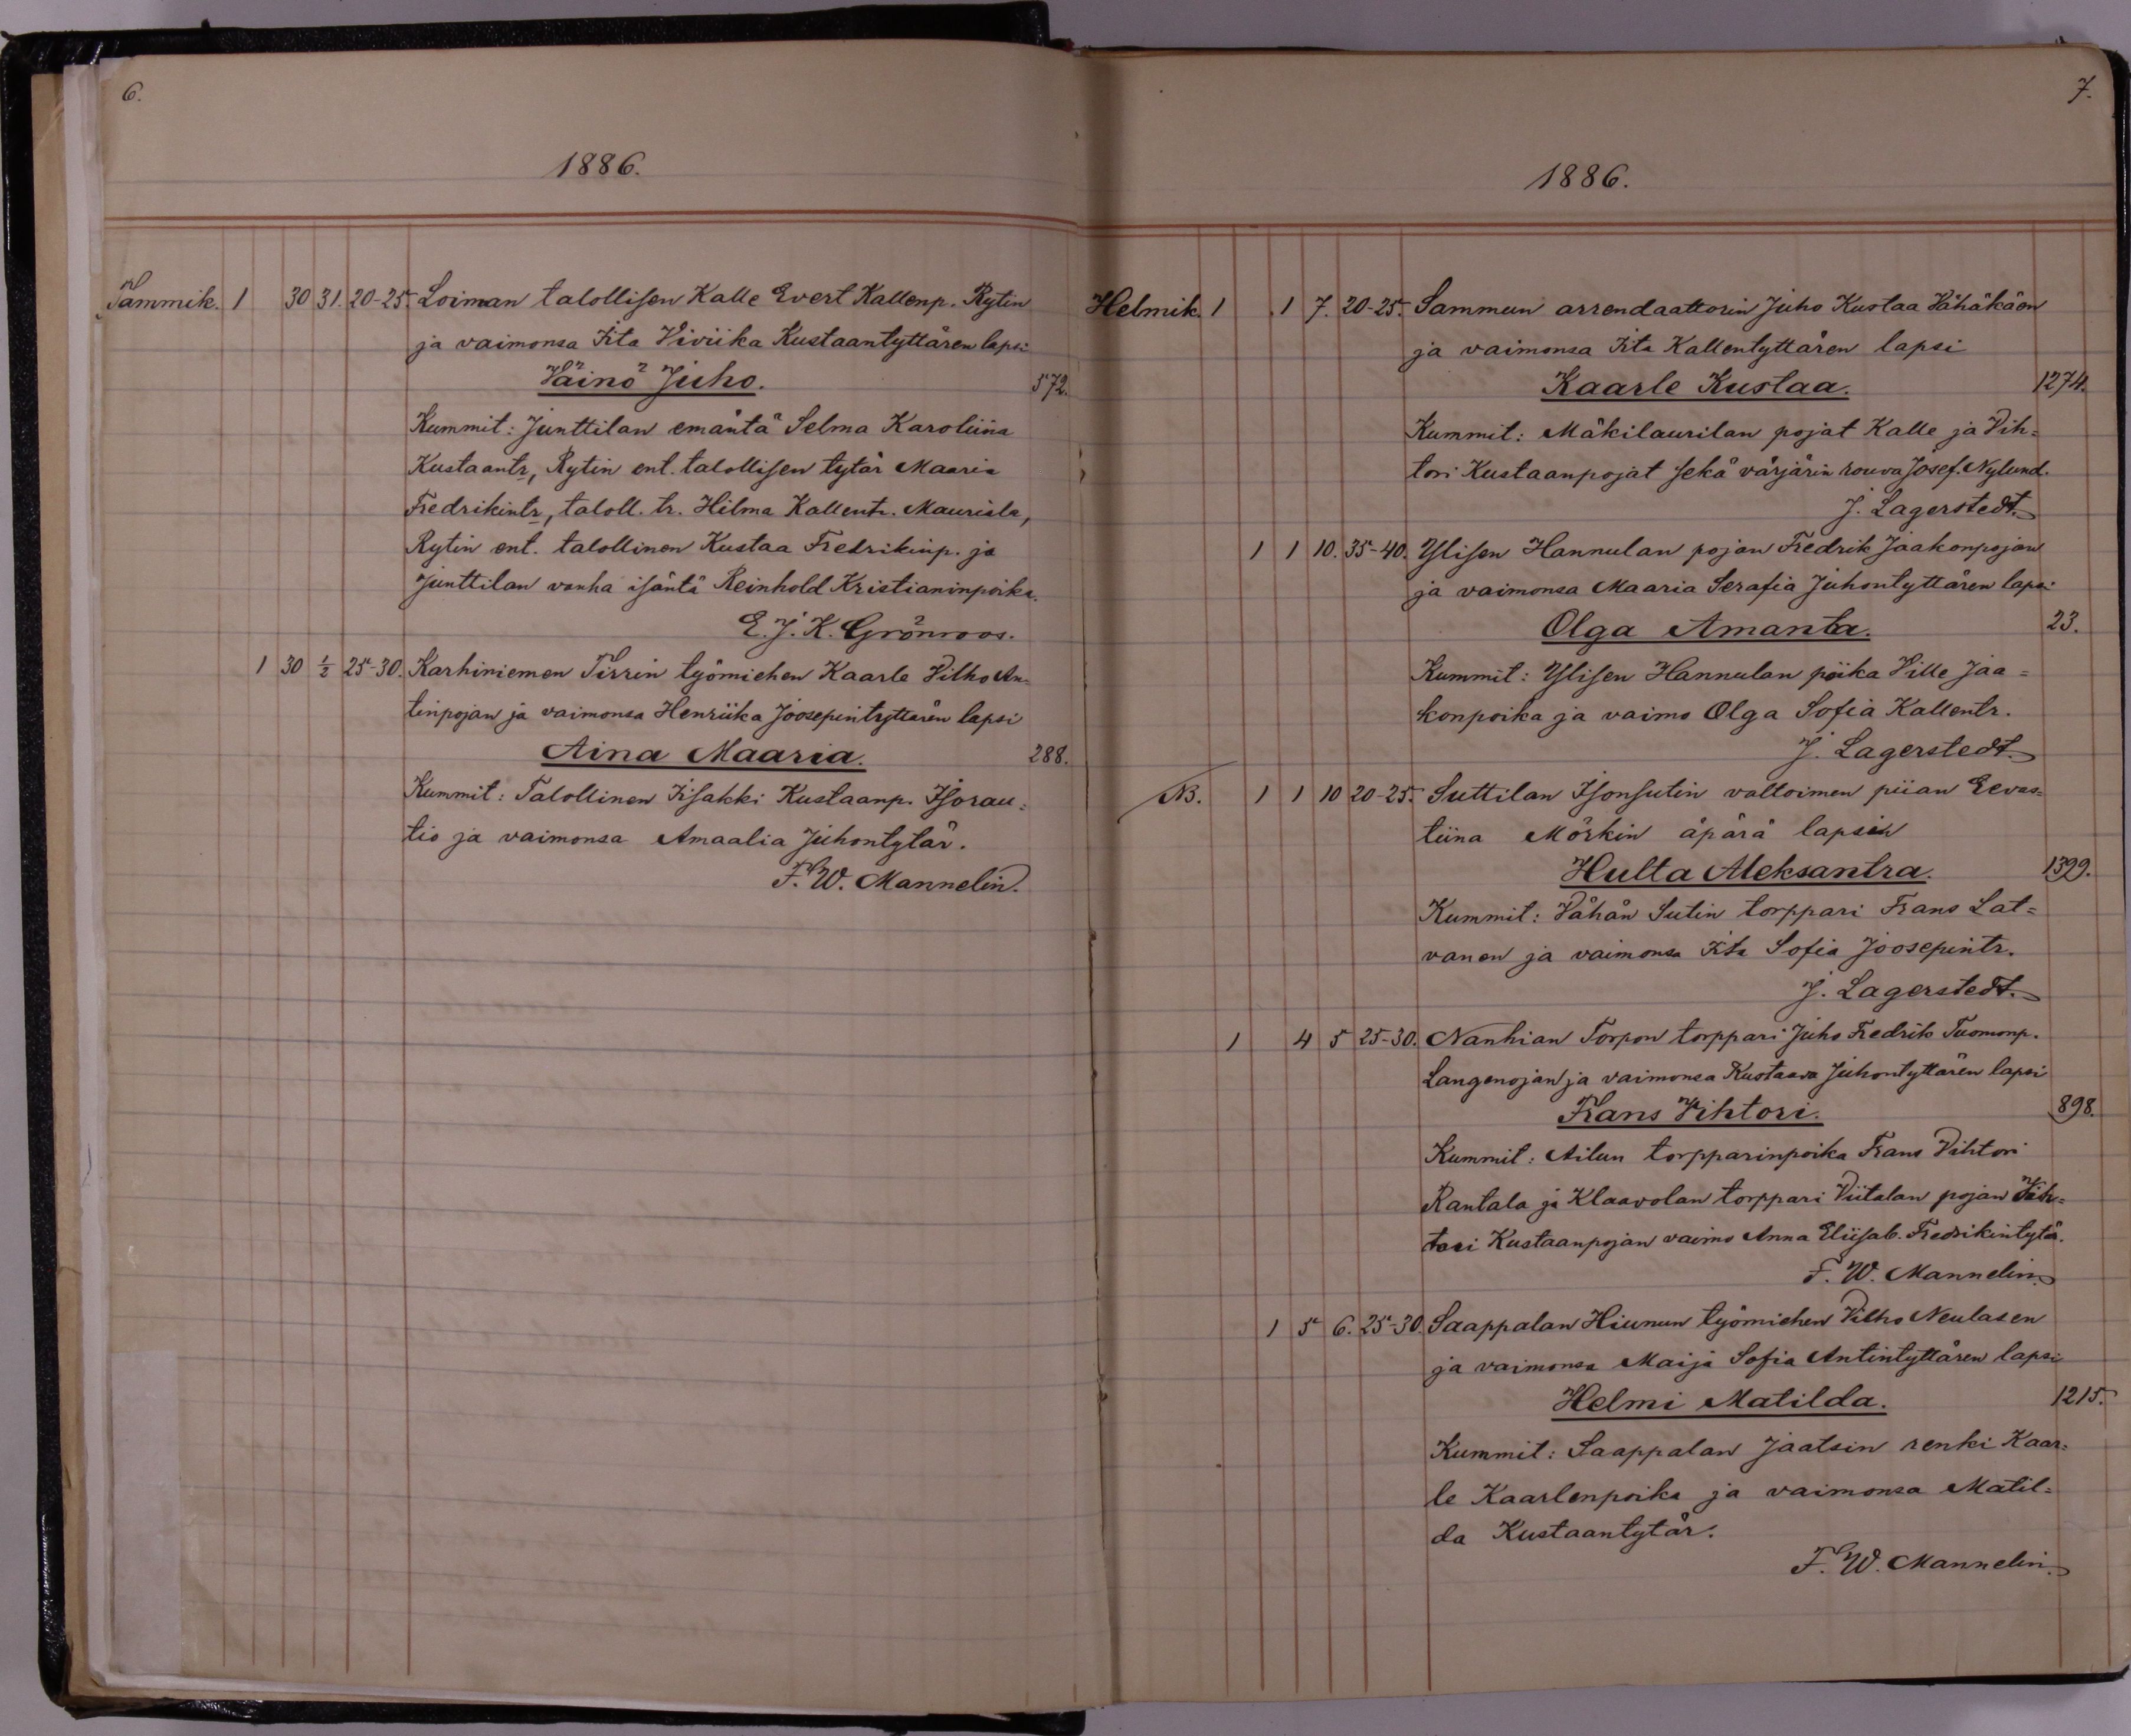 6.
1886.
Tammik. 1 30 31. 20-25. Loiman talollisen Kalle Evert Kallenp. Rytin
ja vaimonsa Iita Viviika Kustaantyttären lapsi
Väinö Juho. 572.
Kummit: Junttilan emäntä Selma Karoliina
Kustaantr, Rytin ent. talollisen tytär Maaria
Fredrikintr, taloll. tr. Hilma Kallentr. Mauriala,
Rytin ent. talollinen Kustaa Fredrikinp. ja
Junttilan vanha isäntä Reinhold Kristianinpoika.
E. J. K. Grönroos.
1 30 1/2 25-30. Karhiniemen Tirrin työmiehen Kaarle Vilho An-
tinpojan ja vaimonsa Henriika Joosepintyttären lapsi
Aina Maaria. 288.
Kummit: Talollinen Iisakki Kustaanp. Isorau=
tio ja vaimonsa Amaalia Juhontytär.
F. W. Mannelin.
7.
1886.
Helmik. 1 1 7. 20-25. Sammun arrendaattorin Juho Kustaa Vähäkäen
ja vaimonsa Iita Kallentyttären lapsi
Kaarle Kustaa. 1274.
Kummit: Mäkilaurilan pojat Kalle ja Vih=
tori Kustaanpojat sekä värjärin rouva Josef. Nylund.
J. Lagerstedt.
1 1 10. 35-40. Ylisen Hannulan pojan Fredrik Jaakonpojan
ja vaimonsa Maaria Serafia Juhontyttären lapsi
Olga Amanta. 23.
Kummit: Ylisen Hannulan poika Ville Jaa=
konpoika ja vaimo Olga Sofia Kallentr.
J. Lagerstedt.
NB. 1 1 10 20-25. Suttilan Isonsutin valtoimen piian Eevas=
tiina Mörkin äpärä lapsi
Hulta Aleksantra. 1399.
Kummit: Vähän Sutin torppari Frans Lat=
vanen ja vaimonsa Iita Sofia Joosepintr.
J. Lagerstedt.
1 4 5 25-30. Nanhian Torpon torppari Juho Fredrik Tuomonp.
Langenojan ja vaimonsa Kustaava Juhontyttären lapsi
Frans Vihtori. 898.
Kummit: Ailun torpparinpoika Frans Vihtori
Rantala ja Klaavolan torppari Viitalan pojan Vih=
tori Kustaanpojan vaimo Anna Eliisab. Fredrikintytä.
F. W. Mannelin.
1 5 6. 25-30. Saappalan Hiunun työmiehen Vilho Neulasen
ja vaimonsa Maija Sofia Antintyttären lapsi
Helmi Matilda. 1215.
Kummit: Saappalan Jaatsin renki Kaar=
le Kaarlenpoika ja vaimonsa Matil=
da Kustaantytär.
F. W. Mannelin.